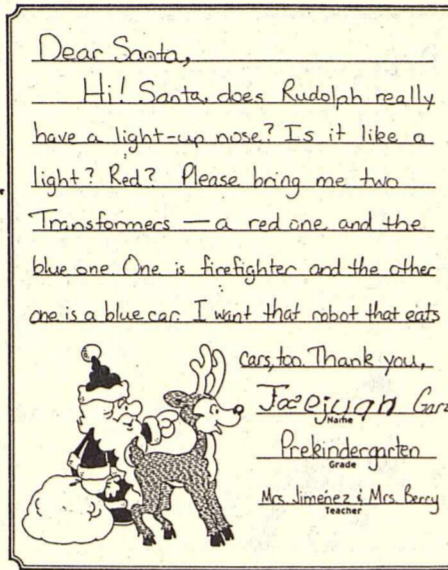 Dear Santa,
Hi! Santa, does Rudolph really
have a light-up nose? Is it like a
light? Red? Please bring me two
Transformers — a red one and the
blue one. One is firefighter and the other
one is a blue car. I want that robot that eats
cars, too. Thank you,
Name
Prekindergarten
Grade
Mrs. Jimenez & Mrs. Berry
Teacher